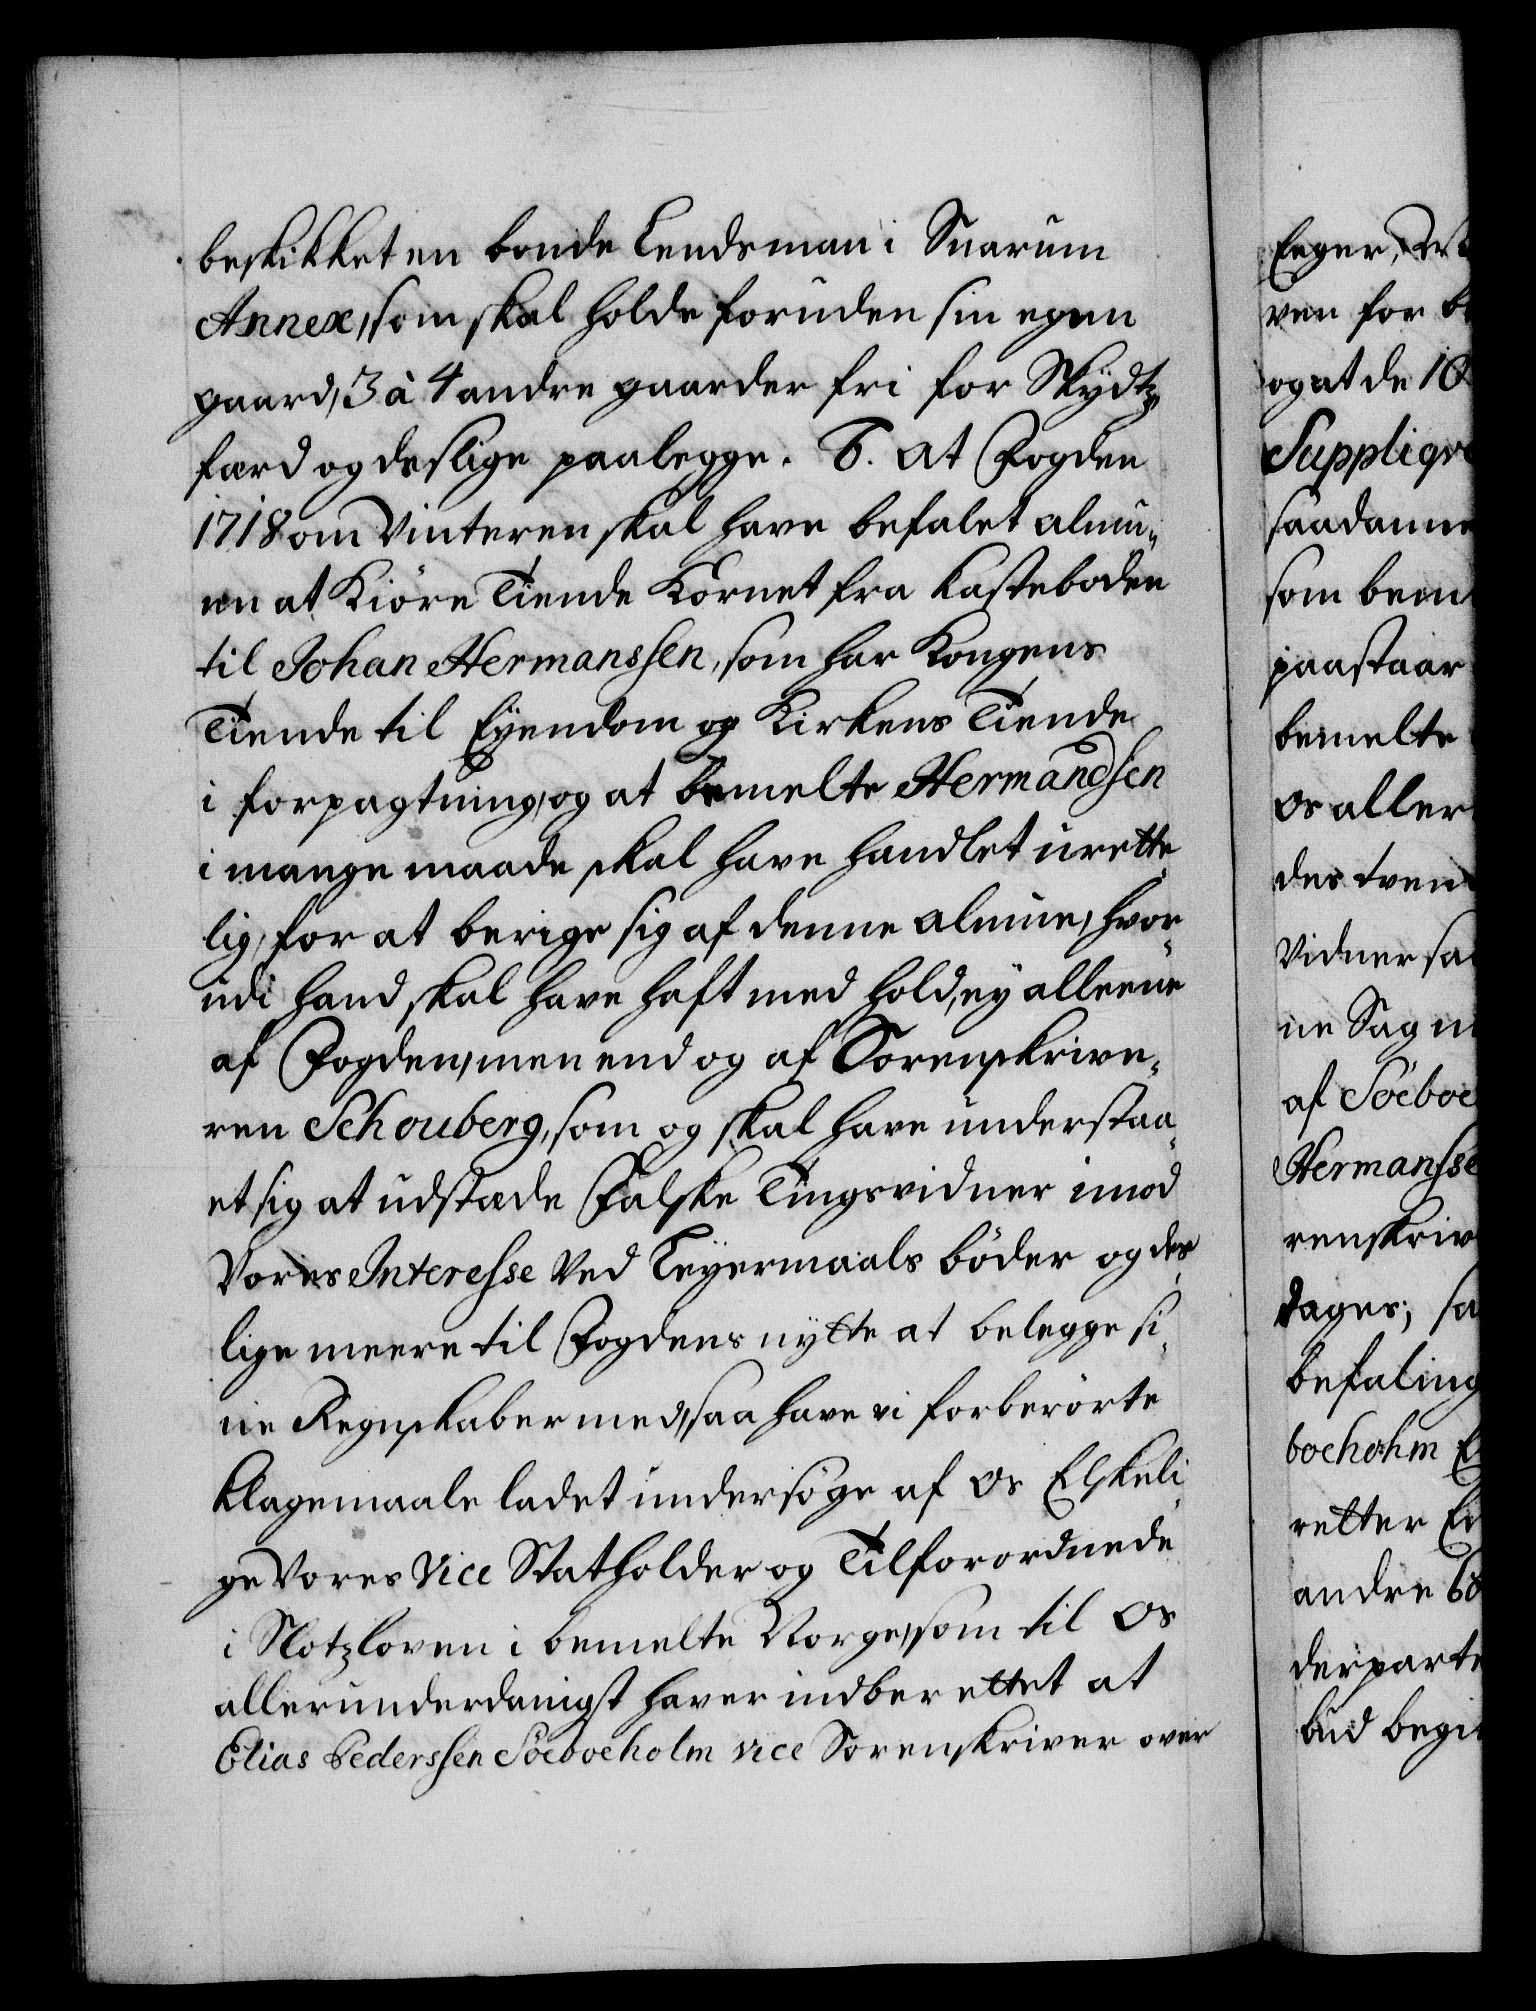 beskikket en bonde Lendsman i Snarum
Annex, som skal holde foruden sin egen
gaard, 3 à 4 andre gaarder fri for Skydtz
færd og deslige paalegge. 6. At Fogden
1718 om Vinteren skal have befalet almu-
en at Kiöre Tiende Kornet fra Kasteboden
til Johan Hermanssen, som har Kongens
Tiende til Eyendom og Kirkens Tiende
i forpagtning, og at bemelte Hermandsen
i mange maade skal have handlet urette-
lig, for at berige sig af denne almue, hvor-
udi hand skal have haft med hold, ey alleene
af Fogden, men end og af Sorenskrive-
ren Schouberg, som og skal have understaa-
et sig at udstæde Falske Tingsvidner imod
Vores Interesse ved Leyermaals böder og des-
lige meere til Fogdens nytte at belegge si-
ne Regnskaber med, saa have vi forberörte
Klagemaale ladet undersöge af os Elskeli-
ge Vores Vice Statholder og Tilforordnede
i Slotzloven i bemelte Norge, som til Os
allerunderdanigst haver indberettet at
Elias Pederssen Söeboeholm vice Sorenskriver over
Eeger,
ven for
og at de 10
Suppliqve
saadanne
som bem
paastaar
bemelte
os aller
des tven
Vidner saa
ne Sag
af Söeboe
Hermansse
renskriv
dages; sa
befaling
boeholm
retter
andre
derparte
bud begi